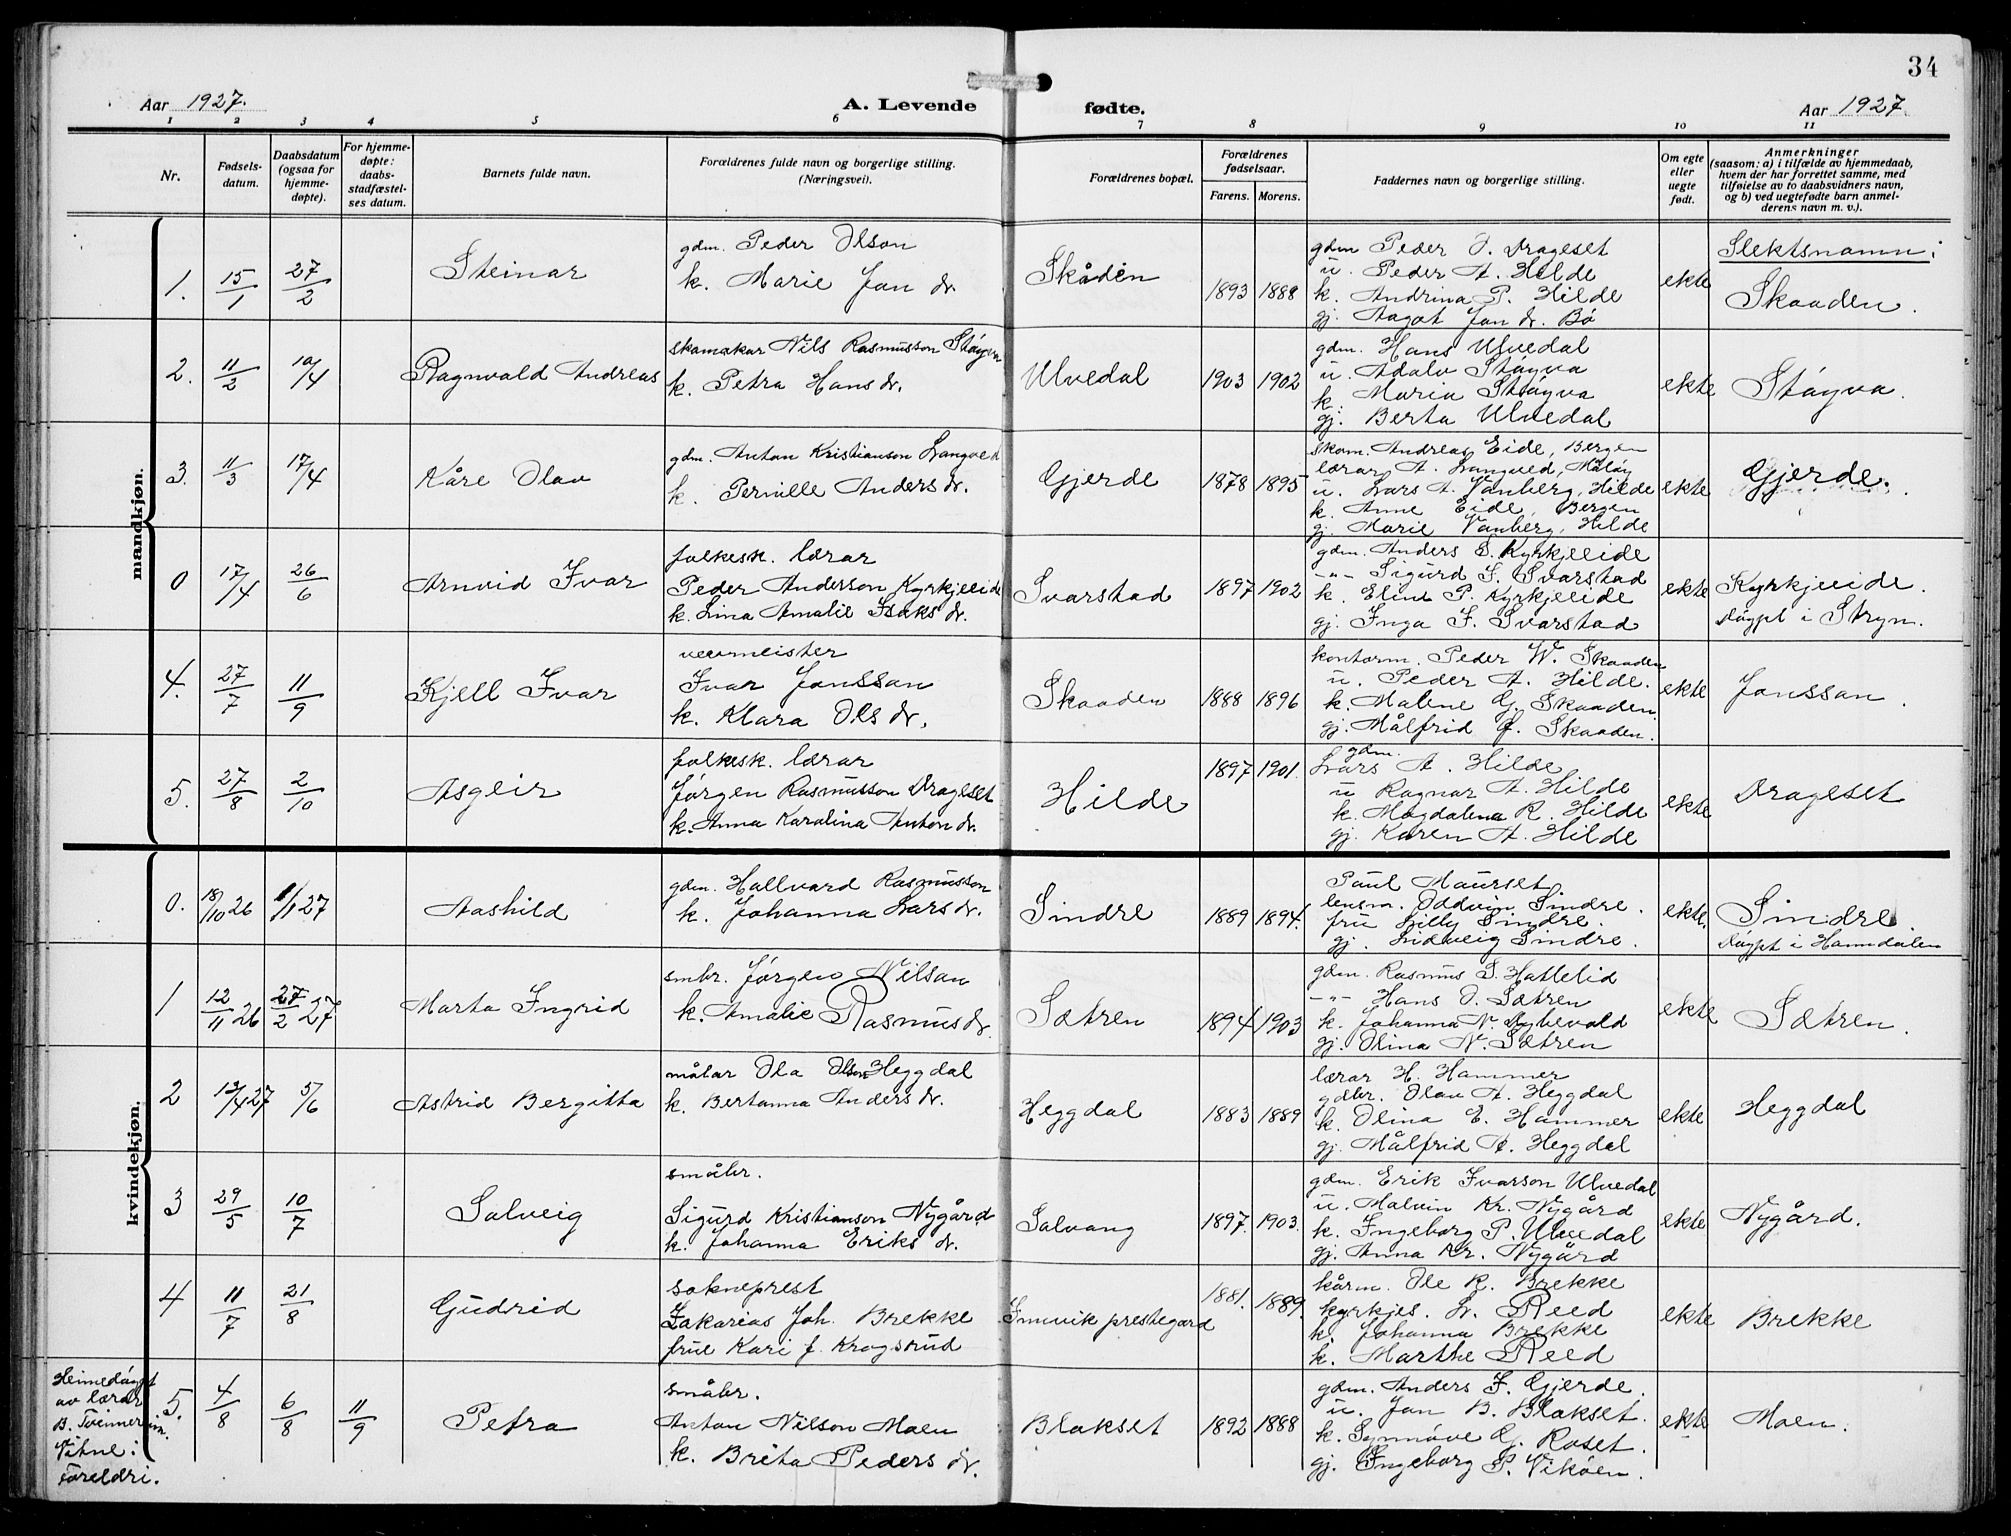 34
Aar 1927.
A. Levende
fødte.
Aar 1927.
1 2 3 4 5 6 7 8 9 10 11
Nr.
Fødsels-
datum.
Daabsdatum
(ogsaa for
hjemme-
døpte).
For hjemme-
døpte:
daabs-
stadfæstel-
ses datum.
Barnets fulde navn.
Forældrenes fulde navn og borgerlige stilling.
(Næringsvei).
Forældrenes bopæl.
Forældrenes
fødselsaar.
Farens. Morens.
Faddernes navn og borgerlige stilling.
Om egte
eller
uegte
født.
Anmerkninger
(saasom: a) i tilfælde av hjemmedaab,
hvem der har forrettet samme, med
tilføielse av to daabsvidners navn,
og b) ved uegtefødte barn anmel-
derens navn m. v.).
mandkjøn.
1. 15/1 27/2
Steinar
gdm. Peder Olson
k. Marie Jon dr.
Skåden
1893 1888
gdm Peder O. Drageset
u. Peder A. Hilde
k. Andrina P. Hilde
gj. Aagot Jon dr. Bø
ekte
Slektsnamn:
Skaaden.
2. 11/2 10/4
Ragnvald Andreas
skomakar Nils Rasmusson Støyva
k. Petra Hans dr.
Ulvedal
1903 1902
gdm. Hans Ulvedal
u. Adolv Støyva
k. Maria Støyva
gj. Berta Ulvedal
ekte
Støyva.
3. 11/3 17/4
Kåre Olav
gdm. Anton Kristianson Langved
k. Pernille Anders dr.
Gjerde
1878 1895
skom. Andreas Eide, Bergen
lærar A. Langved, Måløy
u. Lars A. Vanberg, Hilde
k. Anne Eide, Bergen
gj. Marie Vanberg, Hilde
ekte
Gjerde.
0 17/4 26/6
Arnvid Ivar
folkesk. lærar
Peder Anderson Kyrkjeeide
k. Lina Amalie Isaks dr.
Svarstad
1897 1902
gdm. Anders S. Kyrkjeeide
-"- Sigurd I. Svarstad
k. Eline P. Kyrkjeeide
gj. Inga I. Svarstad
ekte
Kyrkjeeide.
Døypt i Stryn.
4. 27/7 11/9
Kjell Ivar
Ivar Jonsson
k. Klara Ols dr.
Skaaden
1888 1896
kontorm. Peder W. Skaaden
u. Peder A. Hilde.
k. Malene G. Skaaden.
gj. Målfrid J. Skaaden.
ekte
Jonsson.
5. 27/8 2/10
Asgeir
folkesk. lærar
Jørgen Rasmusson Drageset
k. Anna Karolina Anton dr.
Hilde
1897 1901.
gdm.
Lars A. Hilde
u Ragnar A. Hilde
k. Magdalena R. Hilde
gj. Karen A. Hilde
ekte
Drageset
kvindekjøn.
0. 18/10 26 1/1 27
Aashild
gdm. Hallvard Rasmusson
k. Johanna Lars dr.
Sindre
1889 1894.
Paul Maurset.
lensm. Oddvin Sindre.
fru Lilly Sindre.
gj. Lidveig Sindre.
ekte.
Sindre.
Døypt i Hornindalen
1 12/11 26 27/2 27
Marta Ingrid
smbr. Jørgen Nilson
k. Amalie Rasmus dr.
Sætren
1894 1903
gdm. Rasmus S. Hattelid
-"- Hans O. Sætren
k. Johanna N. Dybevold
gj. Olina N. Sætren
ekte
Sætren.
2 13/4 27 5/6
Astrid Bergitta
målar Ola Olson Heggdal
k. Bertanna Anders dr.
Heggdal
1883 1889
lærar H. Hammer
gdbr. Olav A. Heggdal
k. Olina E. Hammer
gj. Målfrid A. Heggdal
ekte
Heggdal
3 29/5 10/7
Solveig
småbr.
Sigurd Kristianson Nygård
k. Johanna Eriks dr.
Solvang
1897. 1903.
gdm. Erik Ivarson Ulvedal
u. Malvin Kr. Nygård
k. Ingeborg P. Ulvedal
gj. Anna Kr. Nygård
ekte
Nygård.
4 11/7 21/8
Gudrid
sokneprest
Zakarias Joh. Brekke
frue Kari f. Krogsrud
Innvik prestegard
1881. 1889.
kårm. Ole K. Brekke
kyrkjes. L. Reed
k. Johanna Brekke
k. Marthe Reed
ekte
Brekke
Heimedøypt
av lærar
B. Tvinnereim.
Vitne:
foreldri.
5. 4/8 6/8 11/9
Petra
småbr.
Anton Nilson Moen
k. Brita Peders dr.
Blakset
1892 1888
gdm. Anders I. Gjerde.
u. Jon B. Blakset.
k. Synnøve G. Roset.
gj. Ingeborg P. Vikøen.
ekte
Moen.